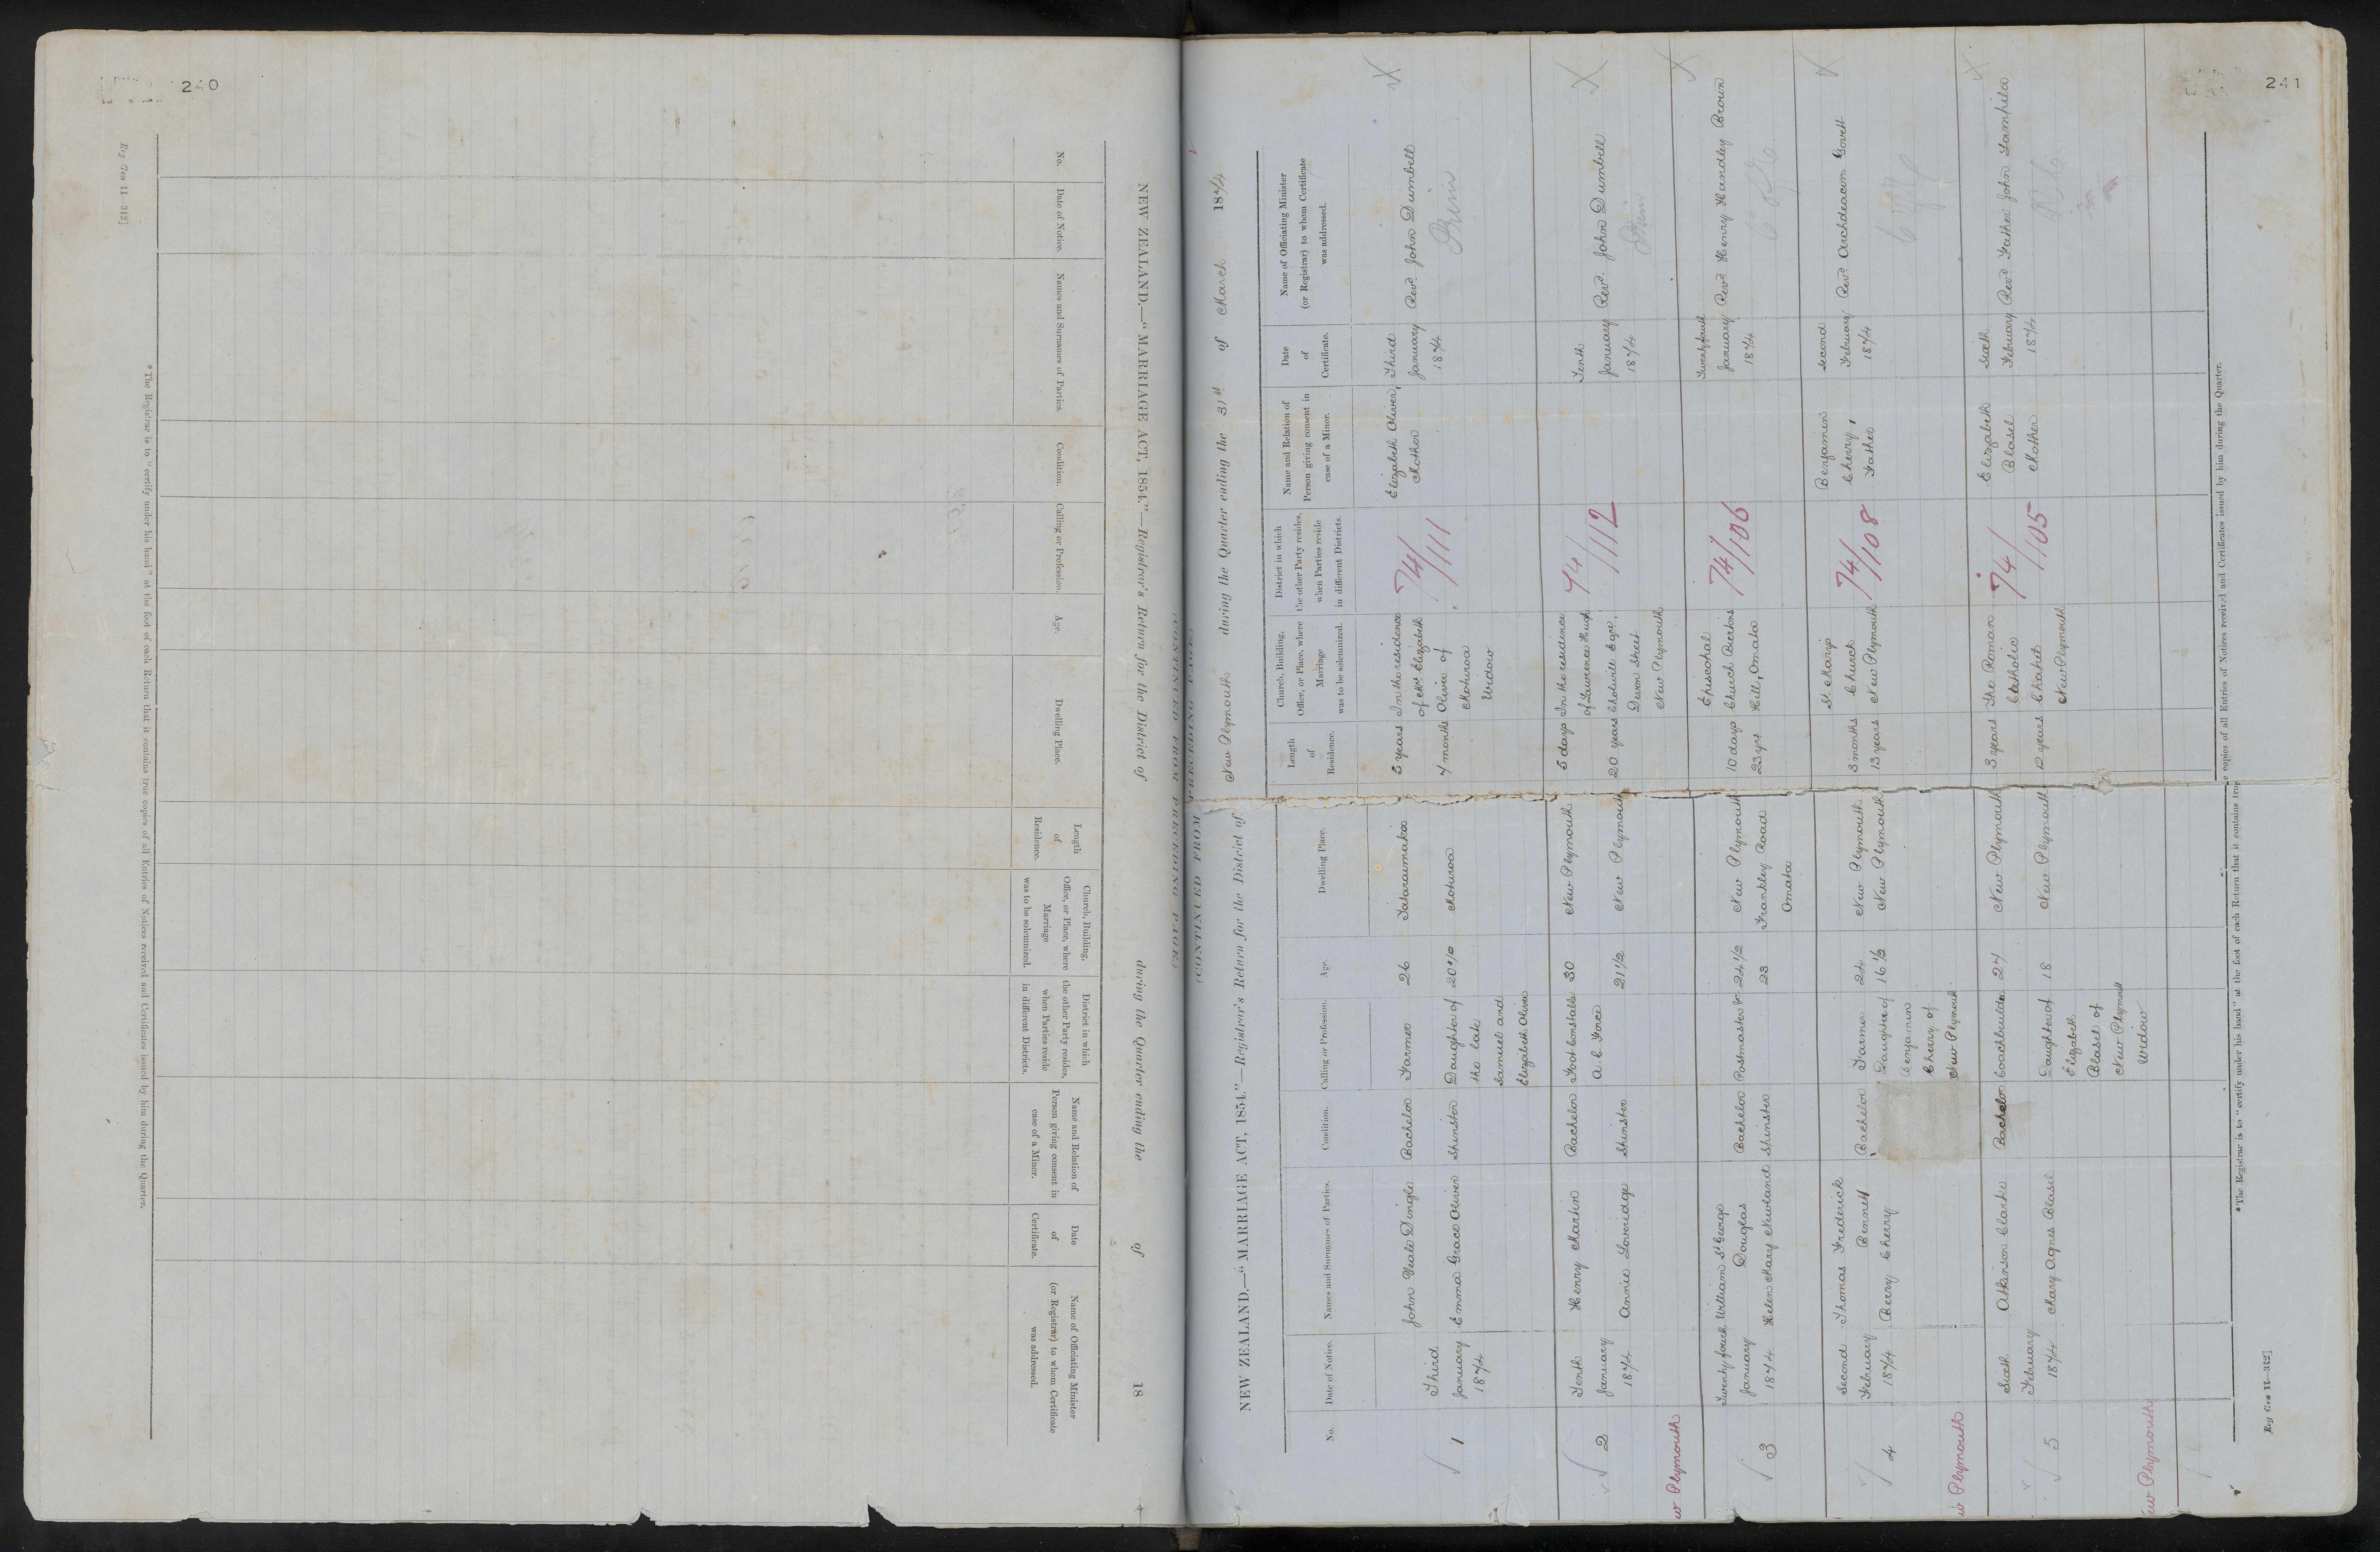 240
Reg Gen 11—312]
NEW ZEALAND.—"MARRIAGE ACT, 1854."—Registrar's Return for the District of during the Quarter ending the of 18
No.
Date of Notice.
Names and Surnames of Parties.
Condition.
Calling or Profession.
Age.
Dwelling Place.
Length
of
Residence.
Church, Building,
Office, or Place, where
Marriage
was to be solemnized.
District in which
the other Party resides,
when Parties reside
in different Districts.
Name and Relation of
Person giving consent in
case of a Minor.
Date
of
Certificate.
Name of Officiating Minister
(or Registrar) to whom Certificate
was addressed.
*The Registrar is to "certify under his hand" at the foot of each Return that it contains true copies of all Entries of Notices received and Certificates issued by him during the Quarter.
(CONTINUED FROM PRECEDING PAGE)
241
(CONTINUED FROM PRECEDING PAGE)
NEW ZEALAND.—"MARRIAGE ACT, 1854."—Registrar's Return for the District of New Plymouth during the Quarter ending the 31st of March 1874
No.
Date of Notice.
Names and Surnames of Parties.
Condition.
Calling or Profession.
Age.
Dwelling Place.
Length
of
Residence.
Church, Building,
Office, or Place, where
Marriage
was to be solemnized.
District in which
the other Party resides,
when Parties reside
in different Districts.
Name and Relation of
Person giving consent in
case of a Minor.
Date
of
Certificate.
Name of Officiating Minister
(or Registrar) to whom Certificate
was addressed.
1
Third
January
1874
John Veale Dingle
Emma Grace Oliver
Bachelor
Spinster
Farmer
Daughter of
the late
Samuel and
Elizabeth Oliver
26
Tataraimaka
Moturoa
5 years
4 months
In the residence
of Mrs Elizabeth
Oliver of
Moturoa
Widow
74/111
Elizabeth Oliver,
Mother
Third
January
1874
Revd. John Dumbell
Prim
2
Tenth
January
1874
Henry Martin
Annie Loveridge
Bachelor
Spinster
Foot Constable
A. C. Force
30
21½
New Plymouth
New Plymouth
5 days
20 years
In the residence
of Lawrence Hugh
Devon Street
New Plymouth
74/112
Tenth
January
1874
Revd. John Dumbell
Prim
New Plymouth
3
Twenty fourth
January
1874
William St George
Douglas
Helen Mary Newland
Bachelor
Spinster
Postmaster
24½
23
New Plymouth
Frankley Road
Omata
10 days
23 yrs
Episcopal
Church
Hill, Omata
74/106
Twentyfourth
January
1874
Revd Henry Handley Brown
4
Second
February
1874
Thomas Frederick
Bennett
Berry Cherry
Bachelor
Farmer
Daughter of
Benjamin
Cherry of
New Plymouth
24
16½
New Plymouth
New Plymouth
3 months
13 years
St. Mary's
Church
New Plymouth
74/108
Benjamin
Cherry,
Father
Second
February
1874
Revd Archdeacon Govett
New Plymouth
5
Sixth
February
1874
Atkinson Clarke
Mary Agnes Blasel
Bachelor
Coachbuilder
Daughter of
Elizabeth
Blasel of
New Plymouth
Widow
24
18
New Plymouth
New Plymouth
3 years
12 years
The Roman
Catholic
Chapel
New Plymouth
74/105
Elizabeth
Blasel
Mother
Sixth
February
1874
Revd Father John
New Plymouth
*The Registrar is to "certify under his hand" at the foot of each Return that it contains true copies of all Entries of Notices received and Certificates issued by him during the Quarter.
Reg Gen 11—312]